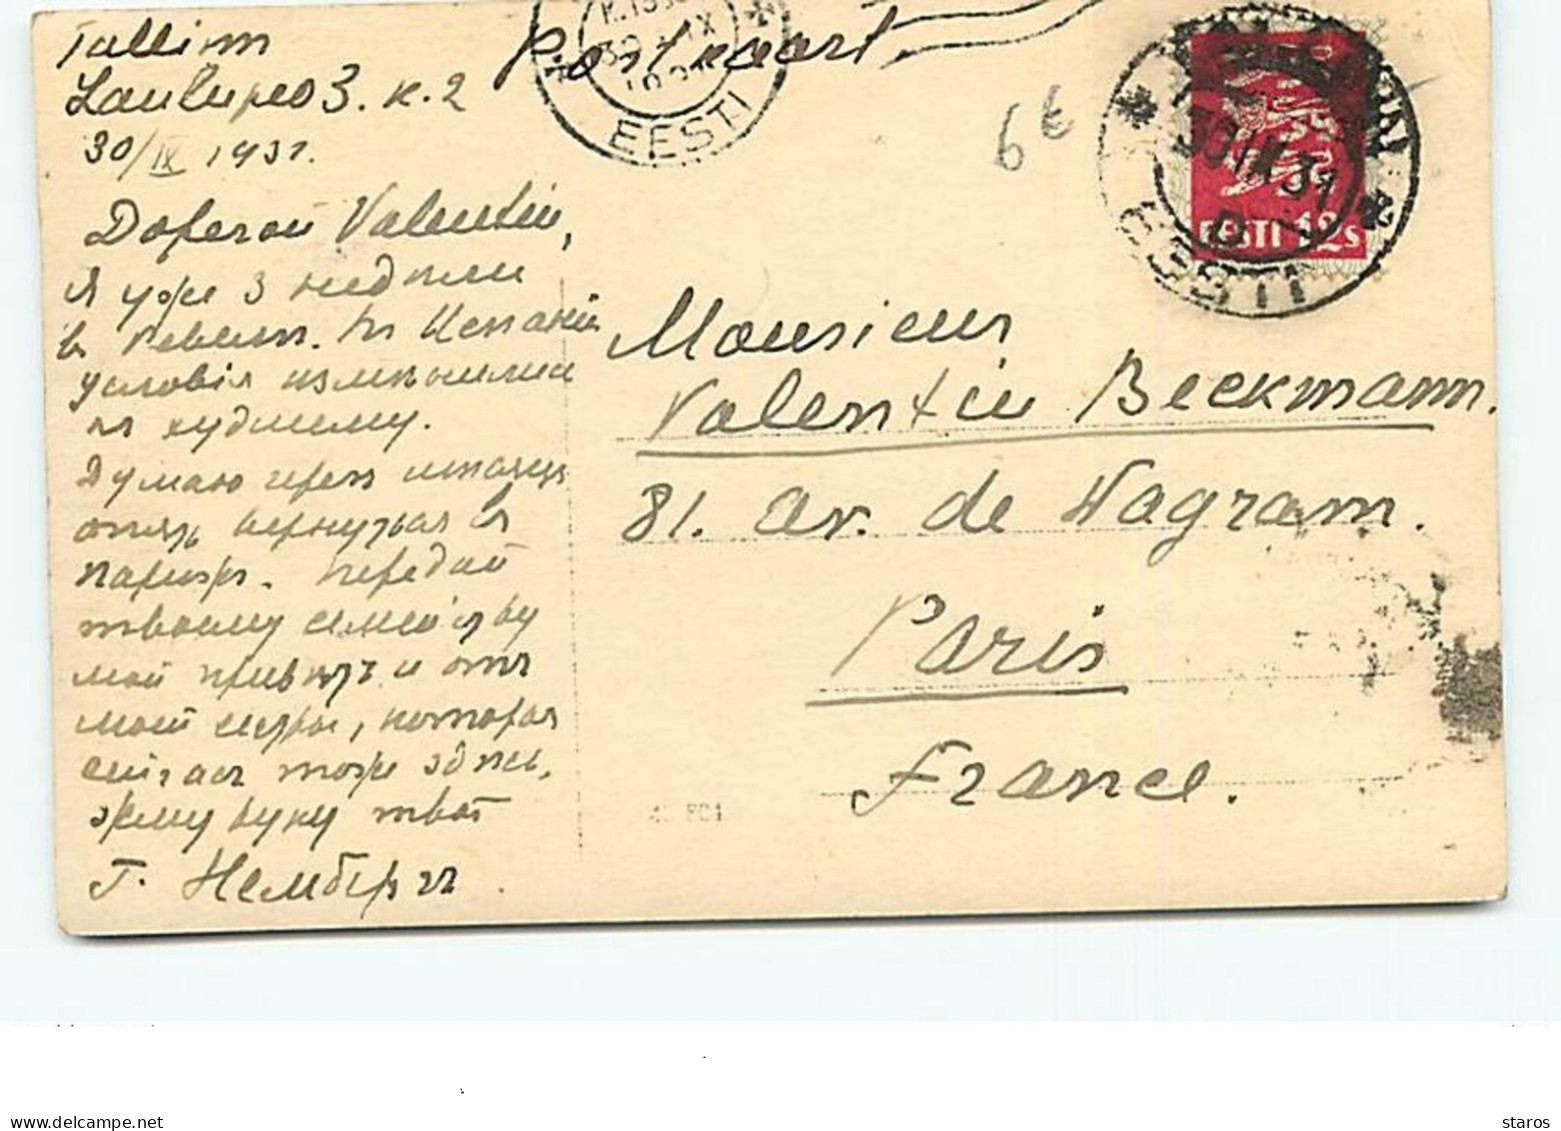 Tallinn
3. к. 2
30/IX 1931.
Postkaart
EESTI
6 €
30 IX 31
EESTI
EESTI 12s
Дорогой Valentin,
Я уже 3 недѣли
въ Ревелѣ. Въ Испаніи
условія измѣнились
къ худшему.
Думаю черезъ мѣсяцъ
опять вернуться въ
Парижъ. Передай
твоему семейству
мой привѣтъ и отъ
моей сестры, которая
сейчасъ тоже здѣсь.
Жму руку твой
Г.
Monsieur
Valentin Beckmann.
81. av. de Wagram.
Paris
France.
www.delcampe.net
staros